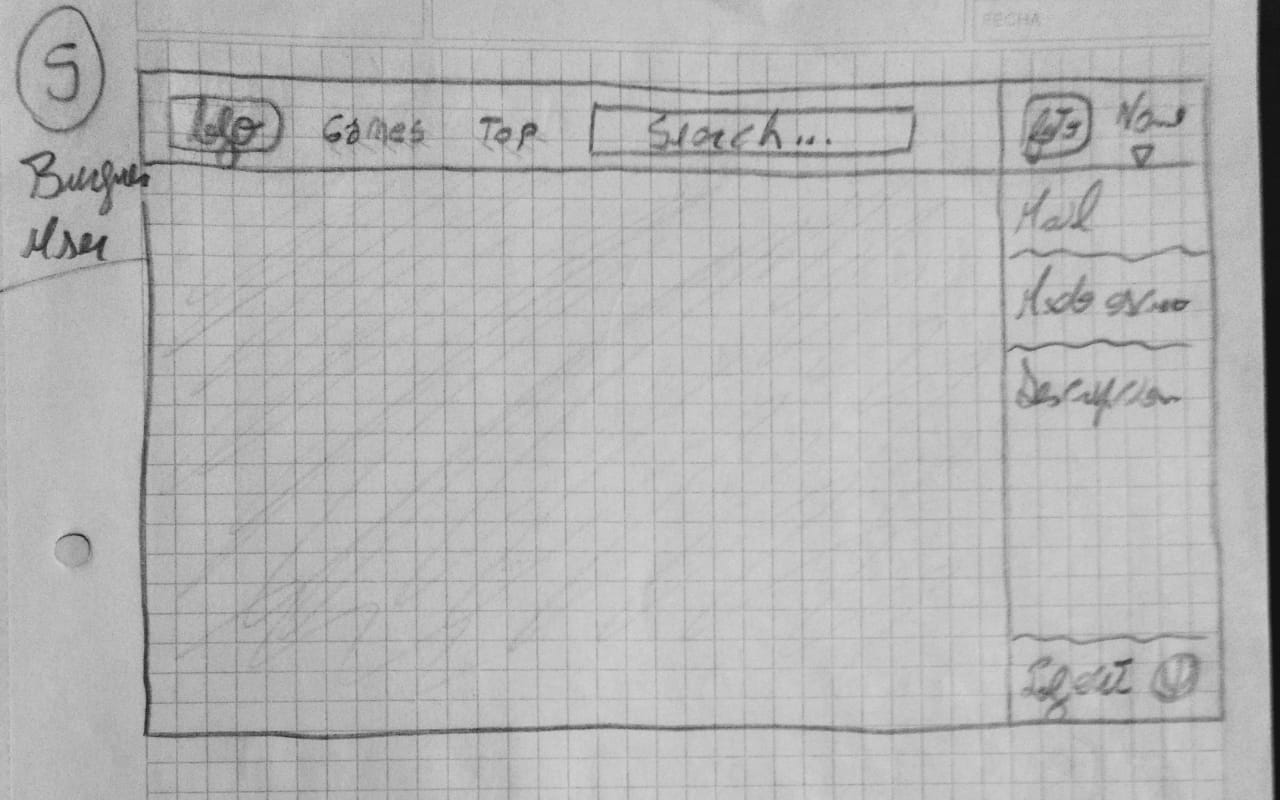 FECHA
5
Burguer
User
Logo Games Top Search... foto Name
Mail
Modo oscuro
Descripcion
Logout